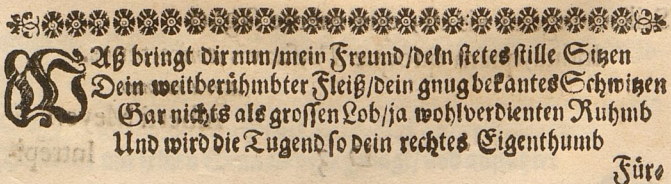 WAß bringt dir nun/mein Freund/dein stetes stille Sitzen
Dein weitberühmbter Fleiß/dein gnug bekantes Schwitzen
Gar nichts als grossen Lob/ja wohlverdienten Ruhmb
Und wird die Tugend so dein rechtes Eigenthumb
Für-